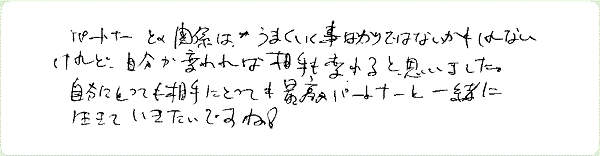 パートナーとの関係は、うまくいく事ばかりではないかもしれない
けれど、自分が変われば相手も変わると思いました。
自分にとっても相手にとっても最高のパートナーと一緒に
生きていきたいですね!